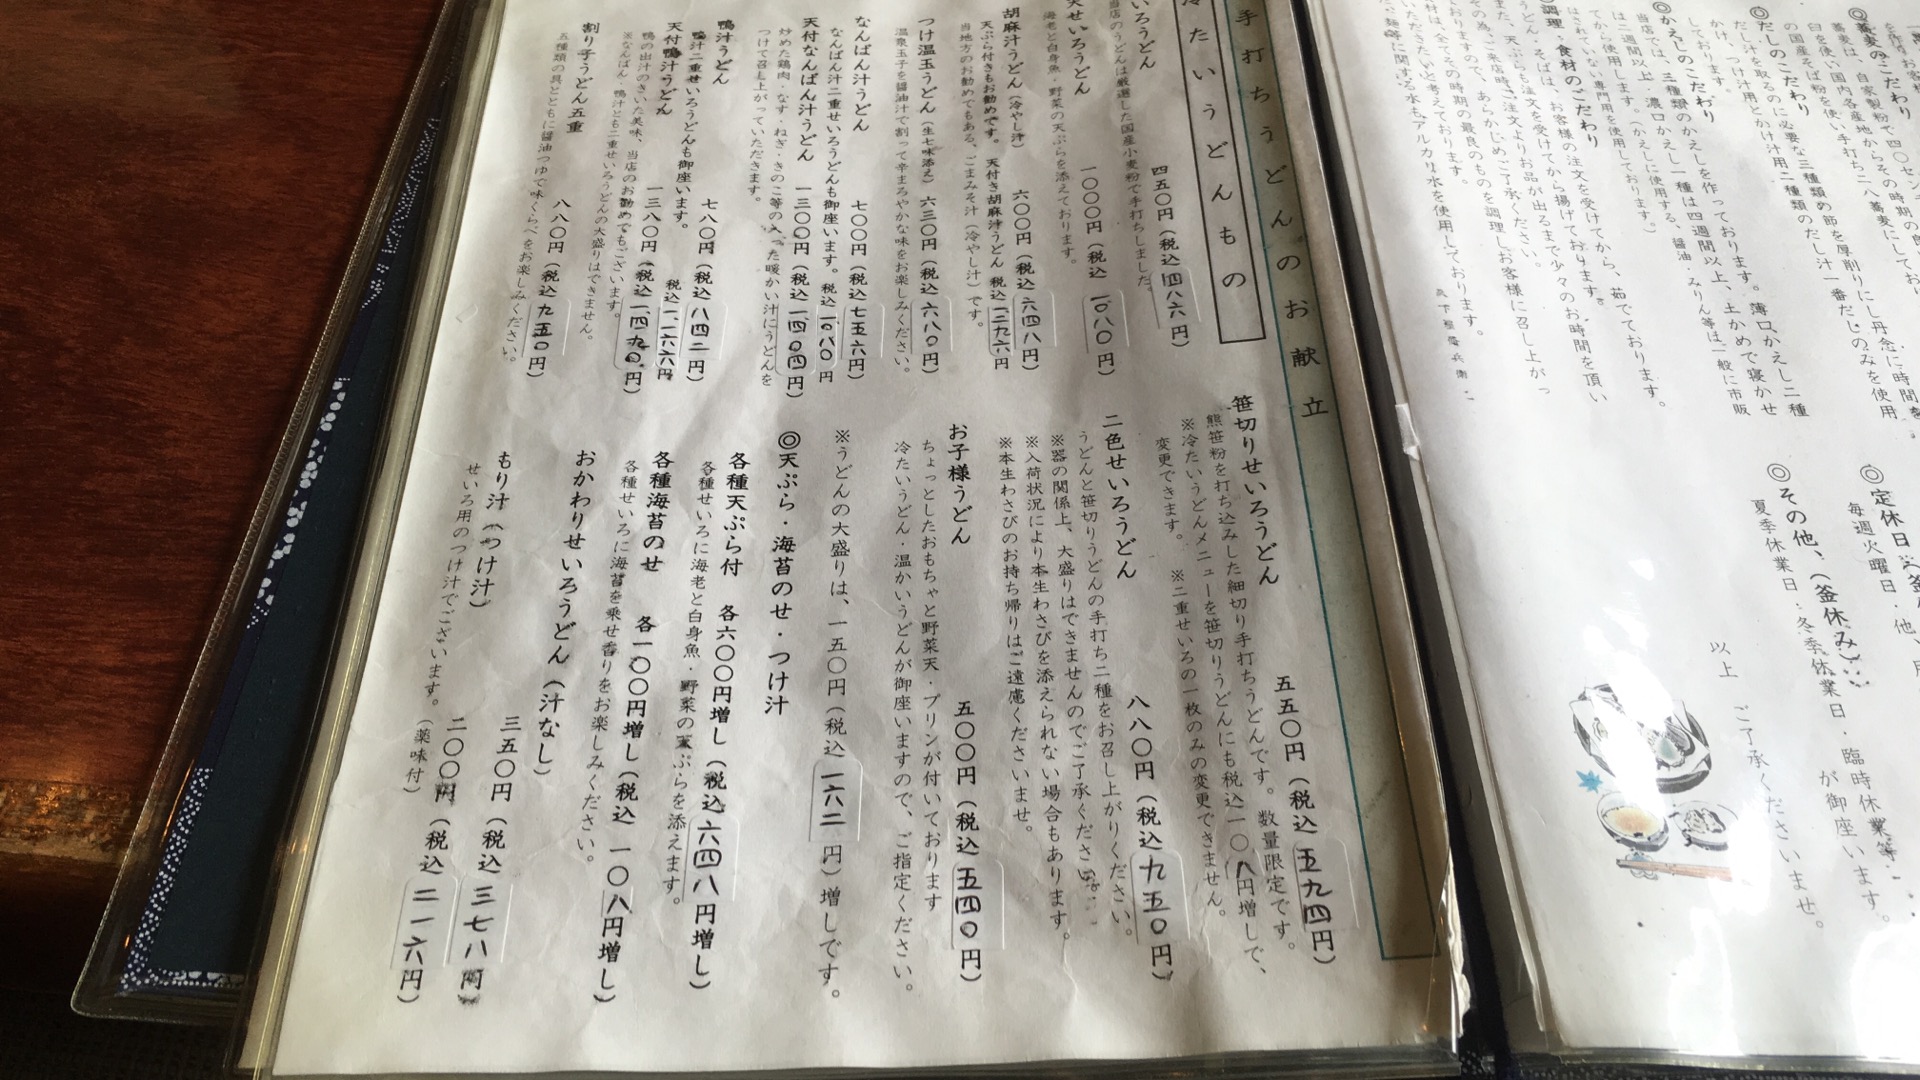 手打ちうどんのお献立
冷たいうどんもの
いろうどん 四五〇円（税込四八六円）
当店のうどんは厳選した国産小麦粉で手打ちしました。
天せいろうどん 一〇〇〇円（税込一〇八〇円）
海老と白身魚・野菜の天ぷらを添えております。
胡麻汁うどん（冷やし汁） 六〇〇円（税込六四八円）
天ぷら付きもお勧めです。 天付き胡麻汁うどん 税込一二九六円
当地方のお勧めでもある、ごまみそ汁（冷やし汁）です。
つけ温玉うどん（生七味添え） 六三〇円（税込六八〇円）
温泉玉子を醤油汁で割って辛まろやかな味をお楽しみください。
なんばん汁うどん 七〇〇円（税込七五六円）
なんばん汁二重せいろうどんも御座います。 税込一〇八〇円
天付なんばん汁うどん 一三〇〇円（税込一、四〇四円）
炒めた鶏肉・なす・ねぎ・きのこ等の入った暖かい汁にうどんを
つけて召し上がっていただきます。
鴨汁うどん 七八〇円（税込八四二円）
鴨汁二重せいろうどんも御座います。 税込一、一六六円
天付鴨汁うどん 一三八〇円（税込一、四九〇円）
鴨の出汁のきいた美味、当店のお勧めでもございます。
※なんばん・鴨汁とも二重せいろうどんの大盛りはできません。
割り子うどん五重 八八〇円（税込九五〇円）
五種類の具とともに醤油つゆで味くらべをお楽しみください。
笹切りせいろうどん 五五〇円（税込五九四円）
熊笹粉を打ち込みした細切り手打ちうどんです。数量限定です。
※冷たいうどんメニューを笹切りうどんにも税込一〇八円増しで、
変更できます。 ※二重せいろの一枚のみの変更できません。
二色せいろうどん 八八〇円（税込九五〇円）
うどんと笹切りうどんの手打ち二種をお召し上がりください。
※器の関係上、大盛りはできませんのでご了承ください
※入荷状況により本生わさびを添えられない場合もあります。
※本生わさびのお持ち帰りはご遠慮くださいませ。
お子様うどん 五〇〇円（税込五四〇円）
ちょっとしたおもちゃと野菜天・プリンが付いております
冷たいうどん・温かいうどんが御座いますので、ご指定ください。
※うどんの大盛りは、一五〇円（税込一六二円）増しです。
◎天ぷら・海苔のせ・つけ汁
各種天ぷら付 各六〇〇円増し（税込六四八円増し）
各種せいろに海老と白身魚・野菜の天ぷらを添えます。
各種海苔のせ 各一〇〇円増し（税込一〇八円増し）
各種せいろに海苔を乗せ香りをお楽しみください。
おかわりせいろうどん（汁なし） 三五〇円（税込三七八円）
もり汁（つけ汁） 二〇〇円（税込二一六円）
せいろ用のつけ汁でございます。（薬味付）
◎蕎麦のこだわり
◎だしのこだわり
だし汁を取るのに必要な三種類の節を厚削りにし丹念に時間を
かけ、つけ汁用とかけ汁用二種類のだし汁一番だしのみを使用
しております。
◎かえしのこだわり
当店では、三種類のかえしを作っております。薄口かえし二種
は二週間以上、濃口かえし一種は四週間以上、土かめで寝かせ
てから使用します。（かえしに使用する、醤油・みりん等は一般に市販
されていない専門用を使用しております。）
調理・食材のこだわり
うどん・そばは、お客様の注文を受けてから、茹でております。
また、天ぷらも注文を受けてから揚げております。
その為、ご来店時ご注文よりお品が出るまで少々のお時間を頂い
ておりますので、あらかじめご了承ください。
◎定休日
毎週火曜日・他、
◎その他、（釜休み）
夏季休業日・冬季休業日・臨時休業等
が御座います。
以上 ご了承くださいませ。